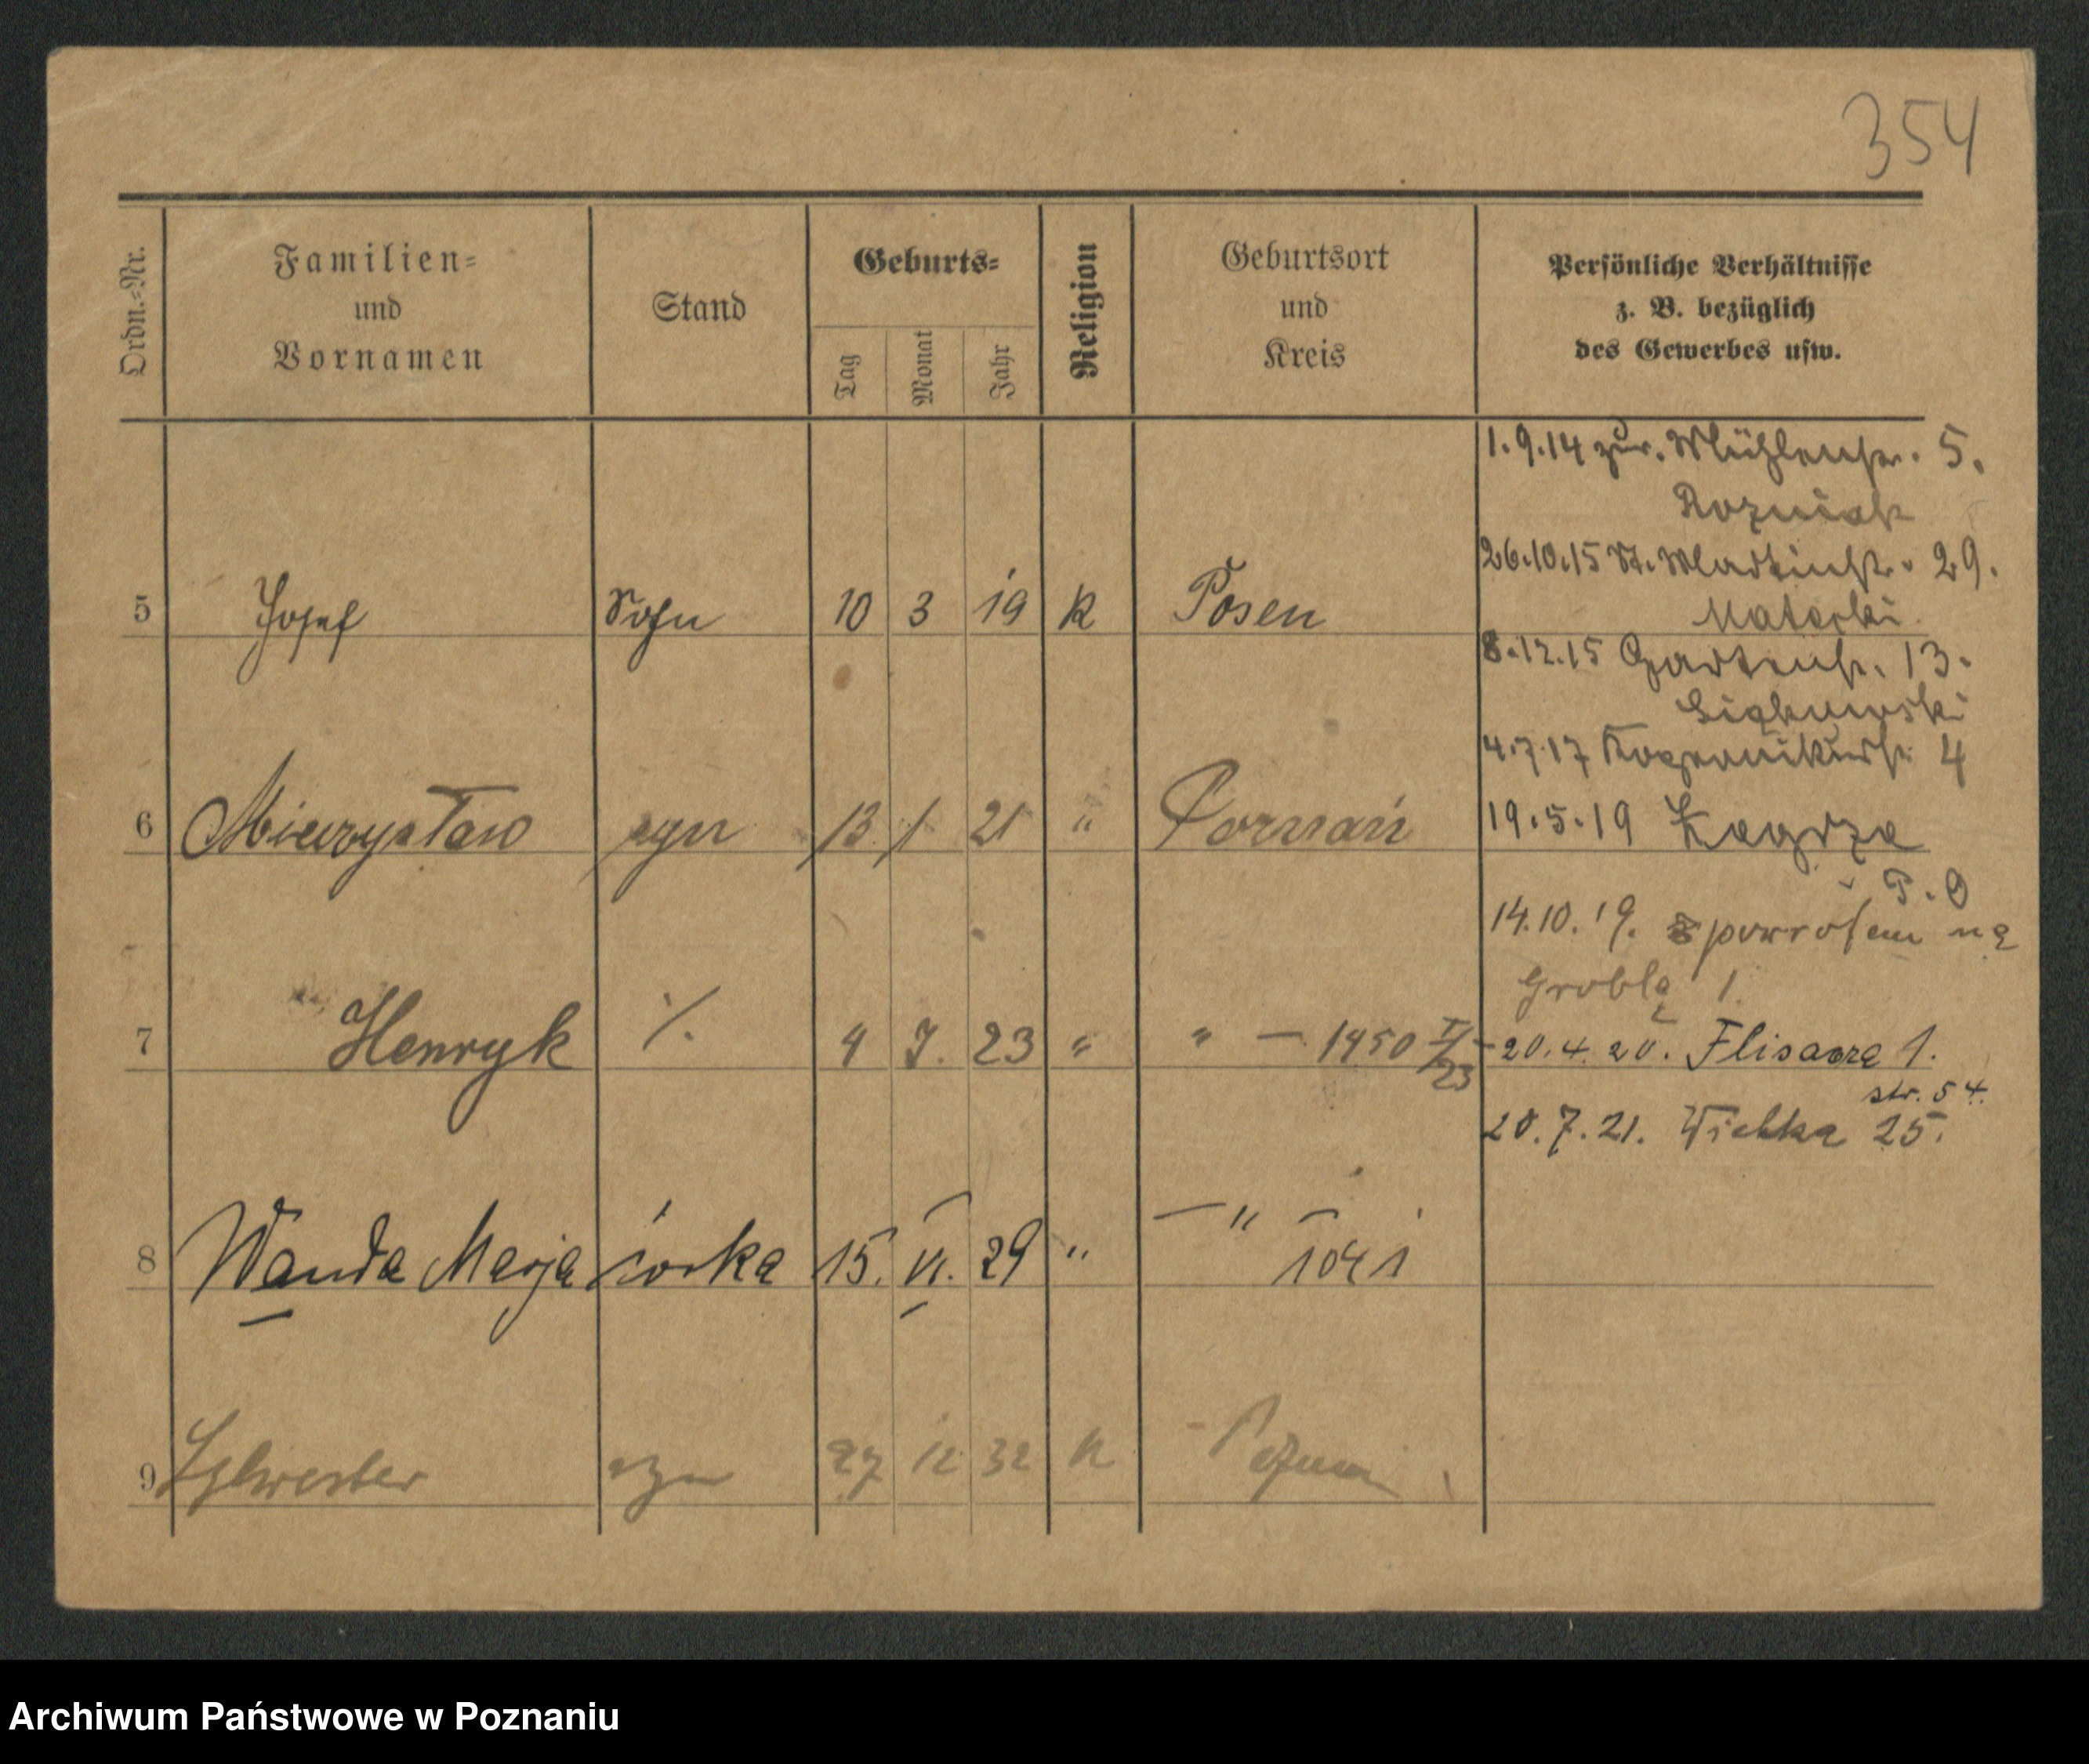 354
Ordn.-Nr.
Familien-
und
Vornamen
Stand
Geburts-
Tag
Monat
Jahr
Religion
Geburtsort
und
Kreis
Persönliche Verhältnisse
z. B. bezüglich
des Gewerbes usw.
1.9.14 zur. Mühlenstr. 5.
Rozniak
26.10.15 St. Martinstr. 29.
5 Josef Sohn 10 3 19 K Posen
8.12.15 Gartenstr. 13.
4.7.17 Kopernikusstr. 4
6 Mieczysław syn 13 1 21 " Poznań
19.5.19 Zagrza
P. O
14.10.19. z powrotem na
Groblę 1.
7 Henryk ·/. 4 7. 23 " " — 1450 II/23
20.4.20. Flisacza 1.
str. 54.
20.7.21. Wielka 25.
8 Wanda Marja córka 15. VI. 29 " — " —
1041
9 Sylwester syn 27 12 32 K Poznań
Archiwum Państwowe w Poznaniu